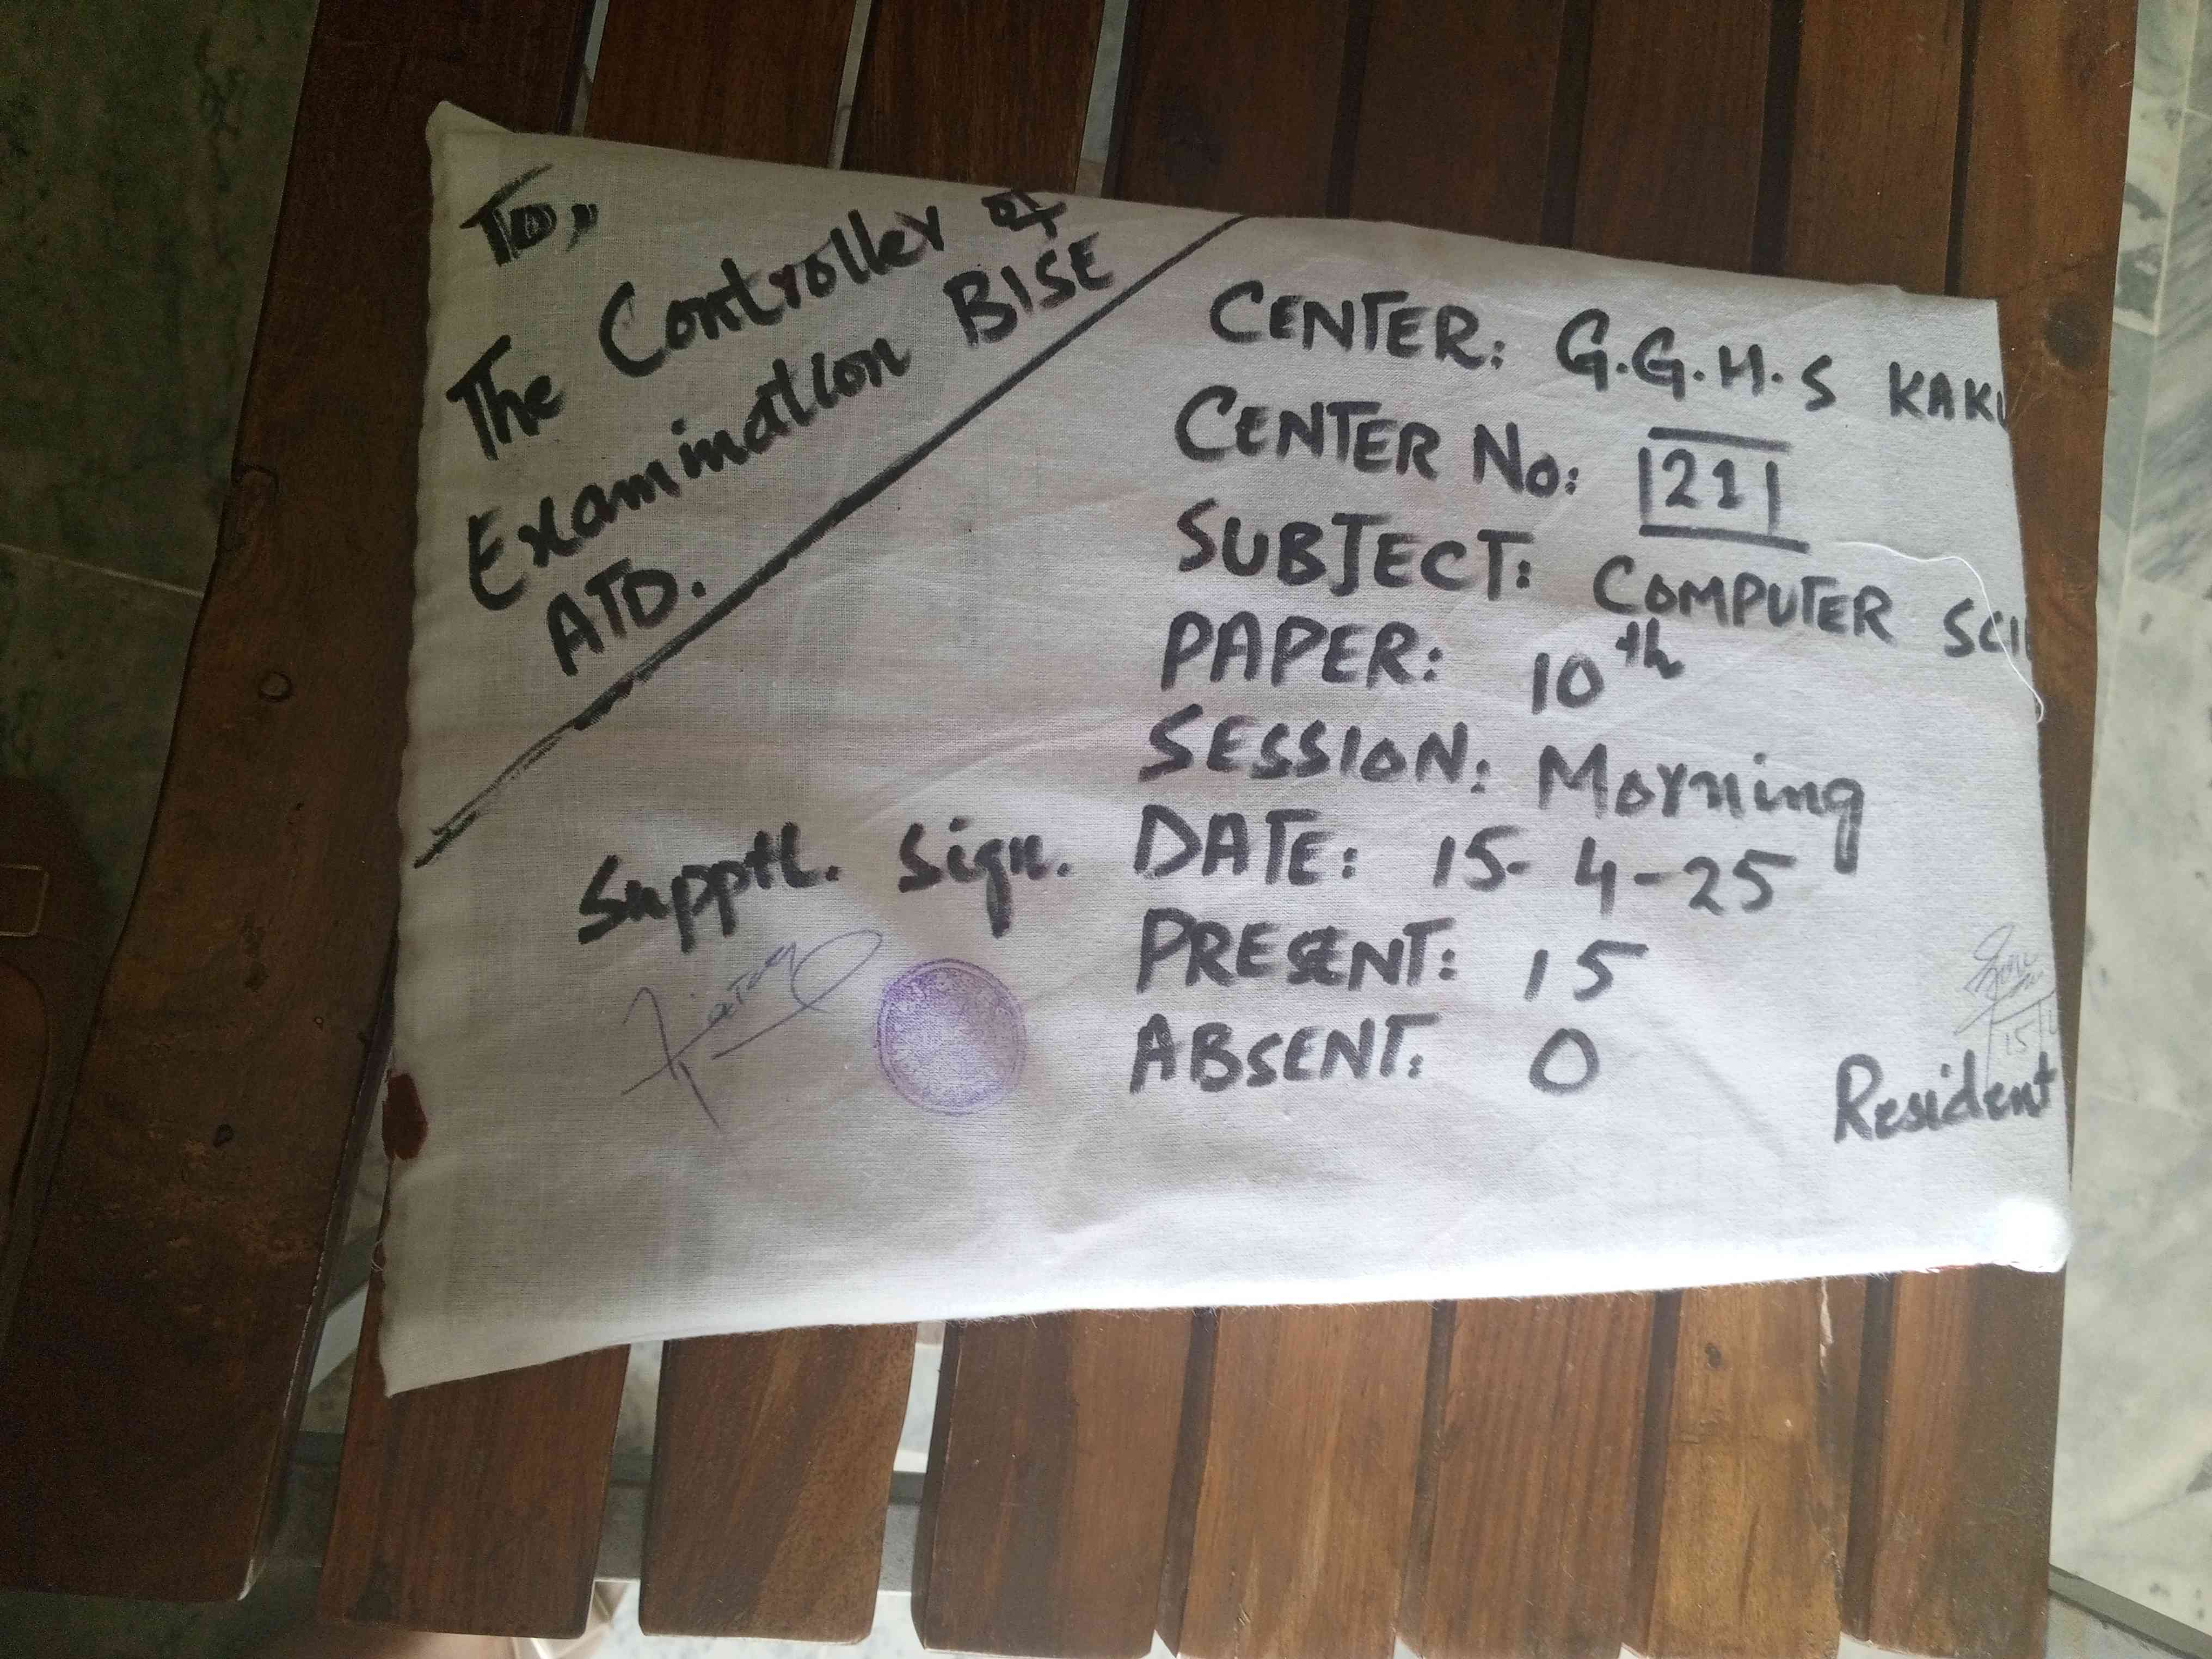 To,
The Controller of
Examination BISE
ATD.
CENTER: G.G.H.S KAKU
CENTER No: |21|
SUBJECT: COMPUTER SCI
PAPER: 10th
SESSION: Morning
DATE: 15-4-25
PRESENT: 15
ABSENT: 0
Supptt. Sign.
Resident